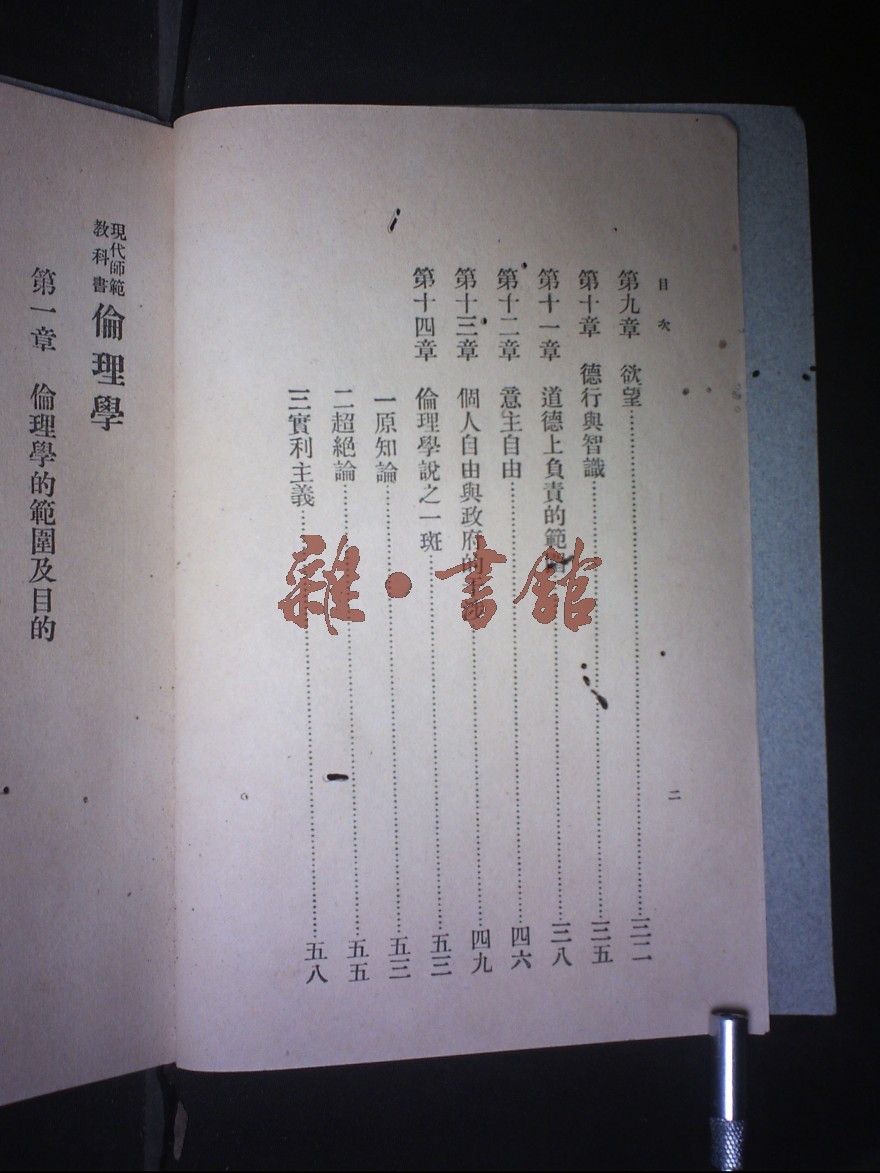 目次
第九章 欲望……三二
第十章 德行與智識……三五
第十一章 道德上負責的範圍……三八
第十二章 意主自由……四六
第十三章 個人自由與政府的……四九
第十四章 倫理學說之一斑……五三
一原知論……五三
二超絕論……五五
三實利主義……五八
二
現代師範教科書 倫理學
第一章 倫理學的範圍及目的
雜·書館